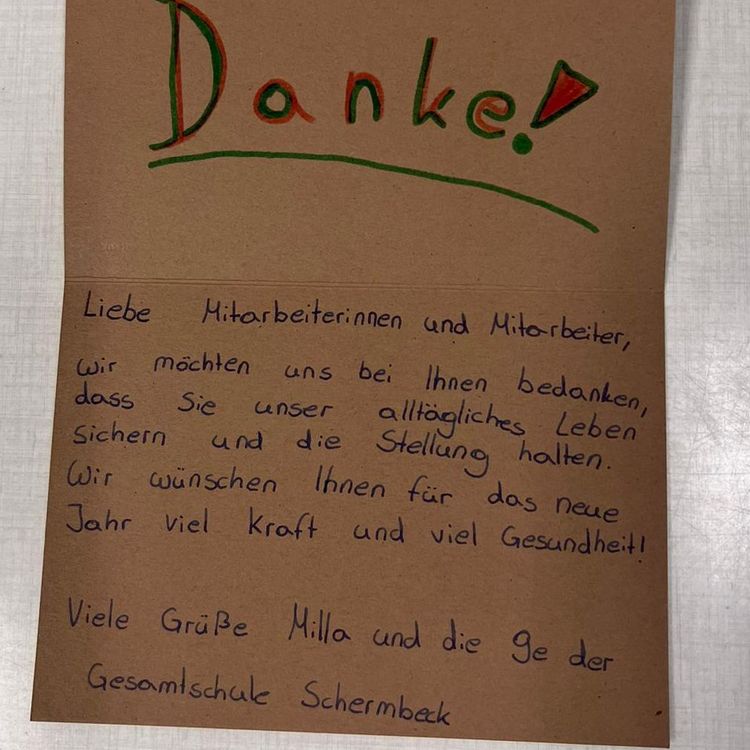 Danke!
Liebe Mitarbeiterinnen und Mitarbeiter,
wir möchten uns bei Ihnen bedanken,
dass Sie unser alltägliches Leben
sichern und die Stellung halten.
Wir wünschen Ihnen für das neue
Jahr viel Kraft und viel Gesundheit!
Viele Grüße Milla und die 9e der
Gesamtschule Schermbeck